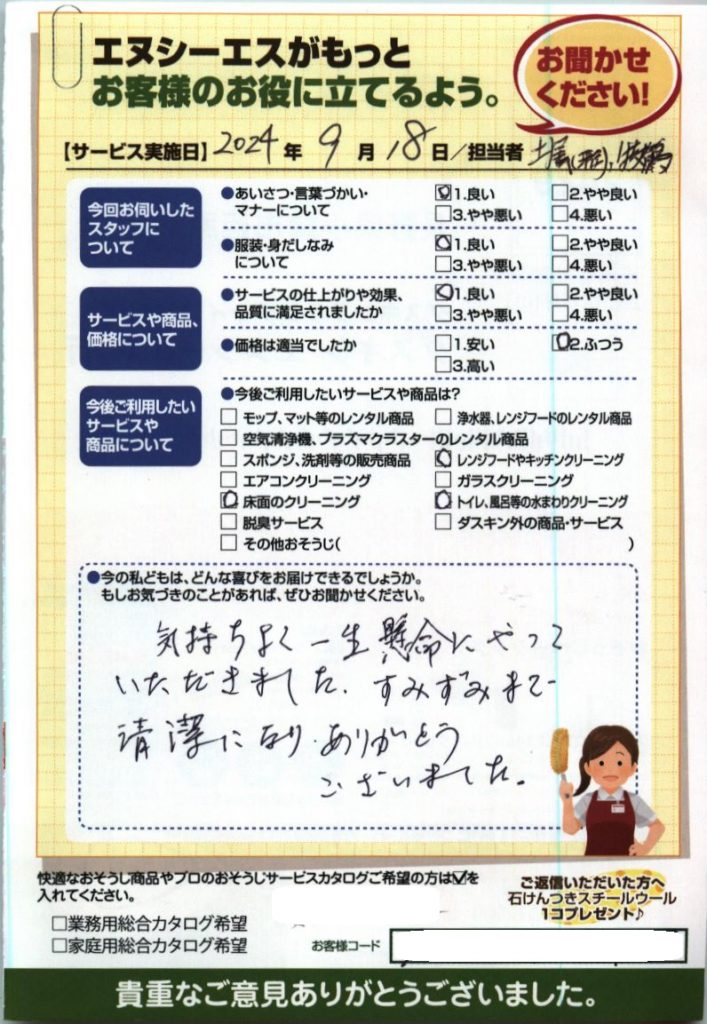 エヌシーエスがもっと
お客様のお役に立てるよう。
お聞かせ
ください!
【サービス実施日】2024年 9月 18日/担当者
今回お伺いした
スタッフに
ついて
●あいさつ・言葉づかい・
マナーについて
□1.良い □2.やや良い
□3.やや悪い □4.悪い
●服装・身だしなみ
について
□1.良い □2.やや良い
□3.やや悪い □4.悪い
サービスや商品、
価格について
●サービスの仕上がりや効果、
品質に満足されましたか
□1.良い □2.やや良い
□3.やや悪い □4.悪い
●価格は適当でしたか
□1.安い □2.ふつう
□3.高い
今後ご利用したい
サービスや
商品について
●今後ご利用したいサービスや商品は?
□モップ、マット等のレンタル商品 □浄水器、レンジフードのレンタル商品
□空気清浄機、プラズマクラスターのレンタル商品
□スポンジ、洗剤等の販売商品 □レンジフードやキッチンクリーニング
□エアコンクリーニング □ガラスクリーニング
□床面のクリーニング □トイレ、風呂等の水まわりクリーニング
□脱臭サービス □ダスキン外の商品・サービス
□その他おそうじ( )
●今の私どもは、どんな喜びをお届けできるでしょうか。
もしお気づきのことがあれば、ぜひお聞かせください。
気持ちよく一生懸命にやって
いただきました。すみずみまで
清潔になり、ありがとう
ございました。
快適なおそうじ商品やプロのおそうじサービスカタログご希望の方は☑を
入れてください。
□業務用総合カタログ希望
□家庭用総合カタログ希望
ご返信いただいた方へ
石けんつきスチールウール
1コプレゼント♪
お客様コード
貴重なご意見ありがとうございました。